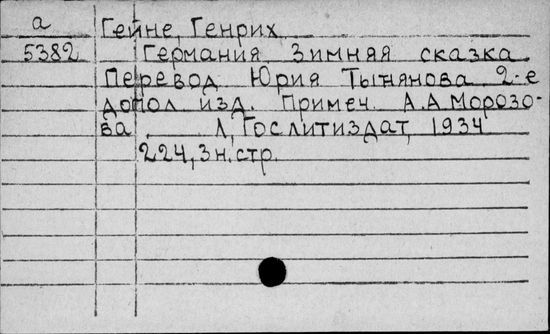 а Гейне, Генрих
5382 Германия Зимняя сказка.
Перевод Юрия Тынянова 2-е
допол изд. Примеч. А.А Морозо-
ва Л, Гослитиздат, 1934
224, 3 н. стр.